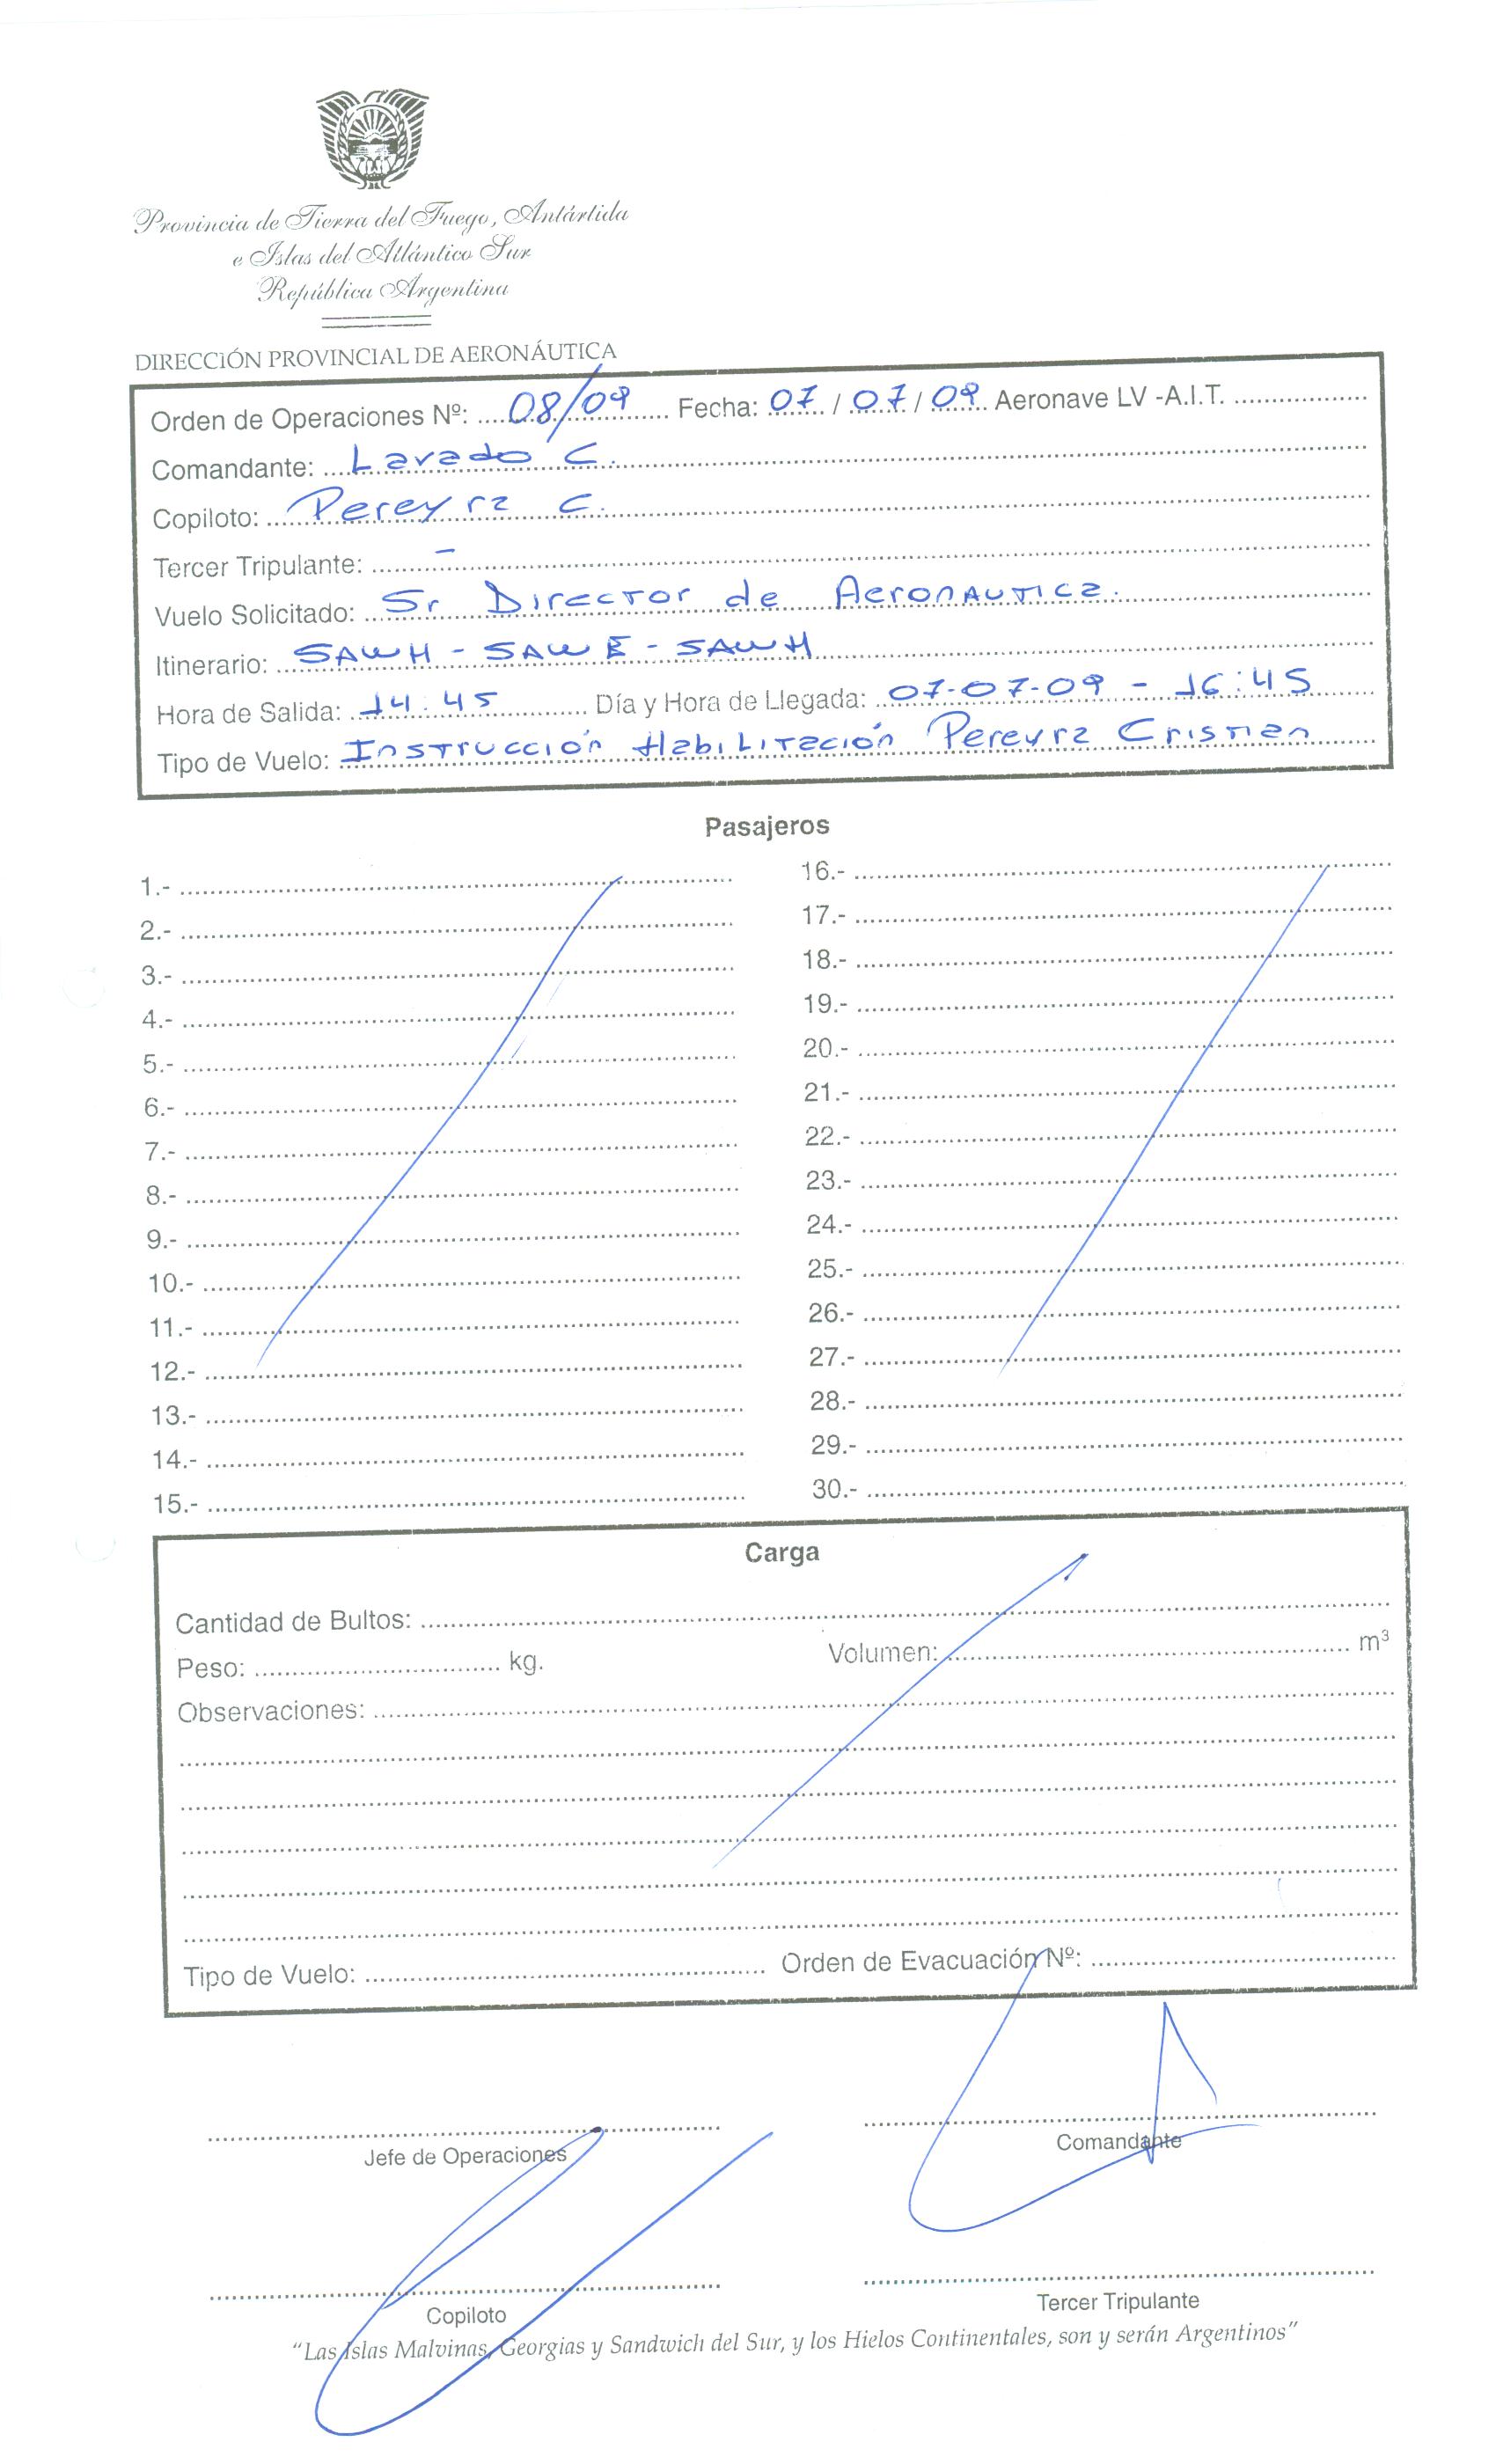 Provincia de Tierra del Fuego, Antártida
e Islas del Atlántico Sur
República Argentina
DIRECCIÓN PROVINCIAL DE AERONÁUTICA
Orden de Operaciones Nº: 08/09 Fecha: 07 / 07 / 09 Aeronave LV -A.I.T.
Comandante: Lavado C.
Copiloto: Pereyra C.
Tercer Tripulante: -
Vuelo Solicitado: Sr Director de Aeronautica.
Itinerario: SAWH - SAWE - SAWH
Hora de Salida: 14:45 Día y Hora de Llegada: 07-07-09 - 16:45
Tipo de Vuelo: Instrucción Habilitación Pereyra Cristian
Pasajeros
1.- 16.-
2.- 17.-
3.- 18.-
4.- 19.-
5.- 20.-
6.- 21.-
7.- 22.-
8.- 23.-
9.- 24.-
10.- 25.-
11.- 26.-
12.- 27.-
13.- 28.-
14.- 29.-
15.- 30.-
Carga
Cantidad de Bultos:
Peso: kg. Volumen: m³
Observaciones:
Tipo de Vuelo: Orden de Evacuación Nº:
Jefe de Operaciones Comandante
Copiloto Tercer Tripulante
"Las Islas Malvinas, Georgias y Sandwich del Sur, y los Hielos Continentales, son y serán Argentinos"